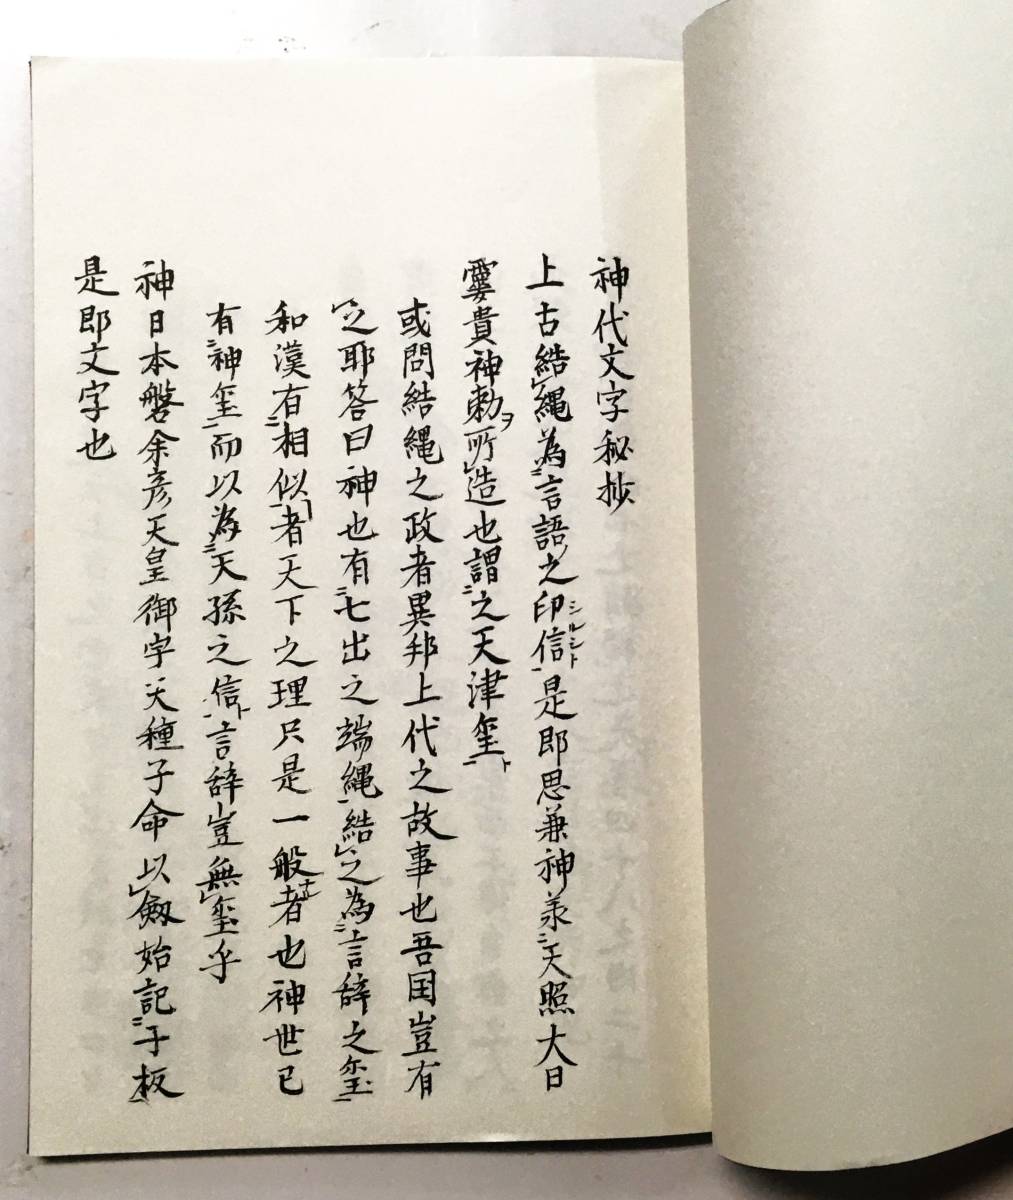 神代文字秘抄
上古結縄為言語之印信シルシト是即思兼神羕天照大日
孁貴神勅ヲ所造也謂之天津璽ト
或問結縄之政者異邦上代之故事也吾国豈有
之耶答曰神也有七出之端縄結之為言辞之璽
和漢有相似者天下之理只是一般ナ者也神世已
有神璽而以為天孫之信ト言辞豈無璽乎
神日本磐余彦天皇御宇天種子命以劔始記于板
是即文字也